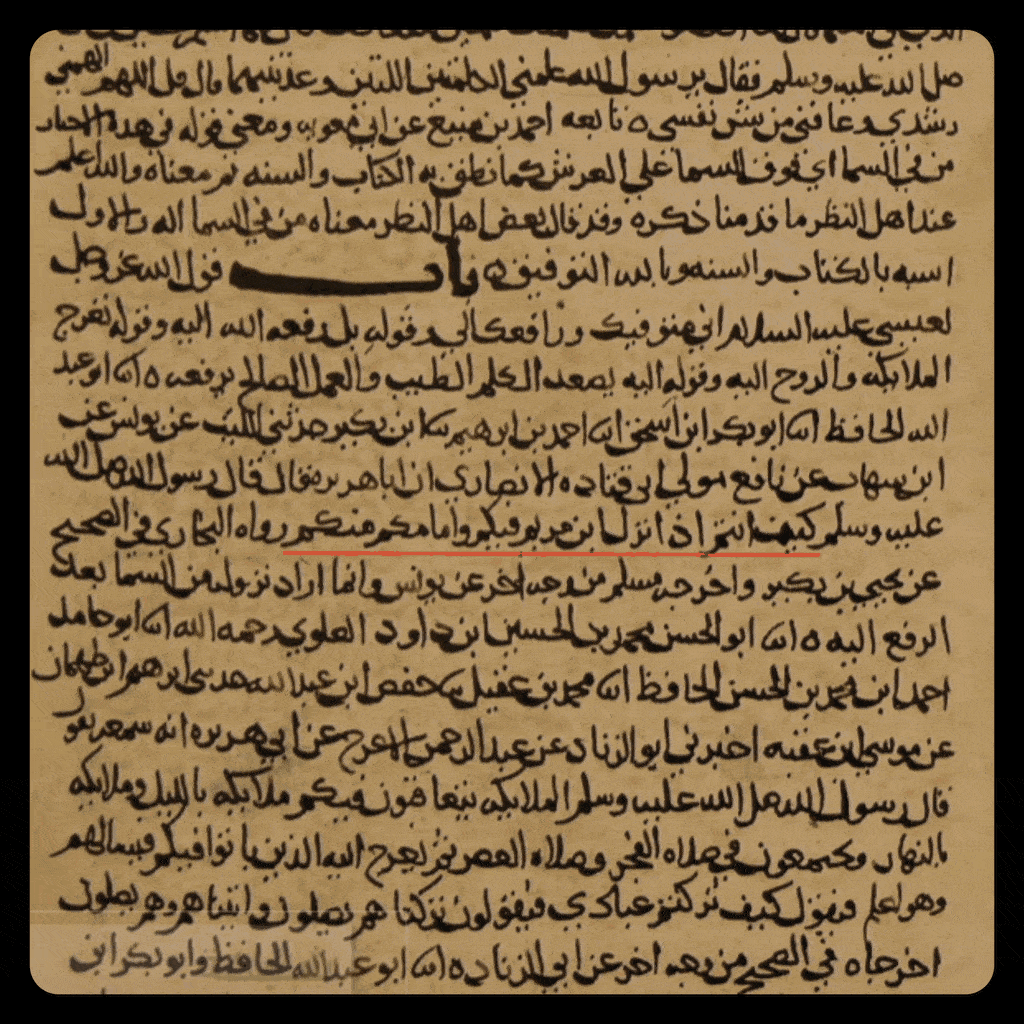 صلى الله عليه وسلم فقال يرسول الله علمني الكلمتين اللتين وعدتنيهما قال قل اللهم الهمني
رشدي وعافني من شر نفسي ه تابعه احمد بن منيع عن ابي معويه ومعنى قوله في هذه الاخبار
من في السما اي فوق السما على العرش كما نطق به الكتاب والسنه ثم معناه والله اعلم
عند اهل النظر ما قدمنا ذكره وقد قال بعض اهل النظر معناه من في السما اله والاول
اشبه بالكتاب والسنه وبالله التوفيق ه باب قول الله عز وجل
لعيسى عليه السلام اني متوفيك ورافعك الي وقوله بل رفعه الله اليه وقوله تعرج
الملايكه والروح اليه وقوله اليه يصعد الكلم الطيب والعمل الصالح يرفعه ه انا ابو عبد
الله الحافظ انا ابو بكر ابن اسحق انا احمد بن ابرهيم سا ابن بكير حدثني الليث عن يونس عن
ابن شهاب عن نافع مولى ابي قتاده الانصاري ان ابا هريره قال قال رسول الله صلى الله
عليه وسلم كيف انتم اذا نزل ابن مريم فيكم وامامكم منكم رواه البخاري في الصحيح
عن يحيى بن بكير واخرجه مسلم من وجه اخر عن يونس وانما اراد نزوله من السما بعد
الرفع اليه ه انا ابو الحسن محمد بن الحسين ابن داود العلوي رحمه الله انا ابو حامد
احمد ابن محمد بن الحسن الحافظ انا محمد بن عقيل سا حفص ابن عبد الله حدثني ابرهيم ابن طهمان
عن موسى بن عقبه اخبرني ابو الزناد عن عبد الرحمن الاعرج عن ابي هريره انه سمعه يقول
قال رسول الله صلى الله عليه وسلم الملايكه يتعاقبون فيكم ملايكه بالليل وملايكه
بالنهار ويجتمعون في صلاه الفجر وصلاه العصر ثم يعرج اليه الذين باتوا فيكم فيسالهم
وهو اعلم فيقول كيف تركتم عبادي فيقولون تركناهم يصلون واتيناهم وهم يصلون
اخرجاه في الصحيح من وجه اخر عن ابي الزناد ه انا ابو عبد الله الحافظ وابو بكر ابن